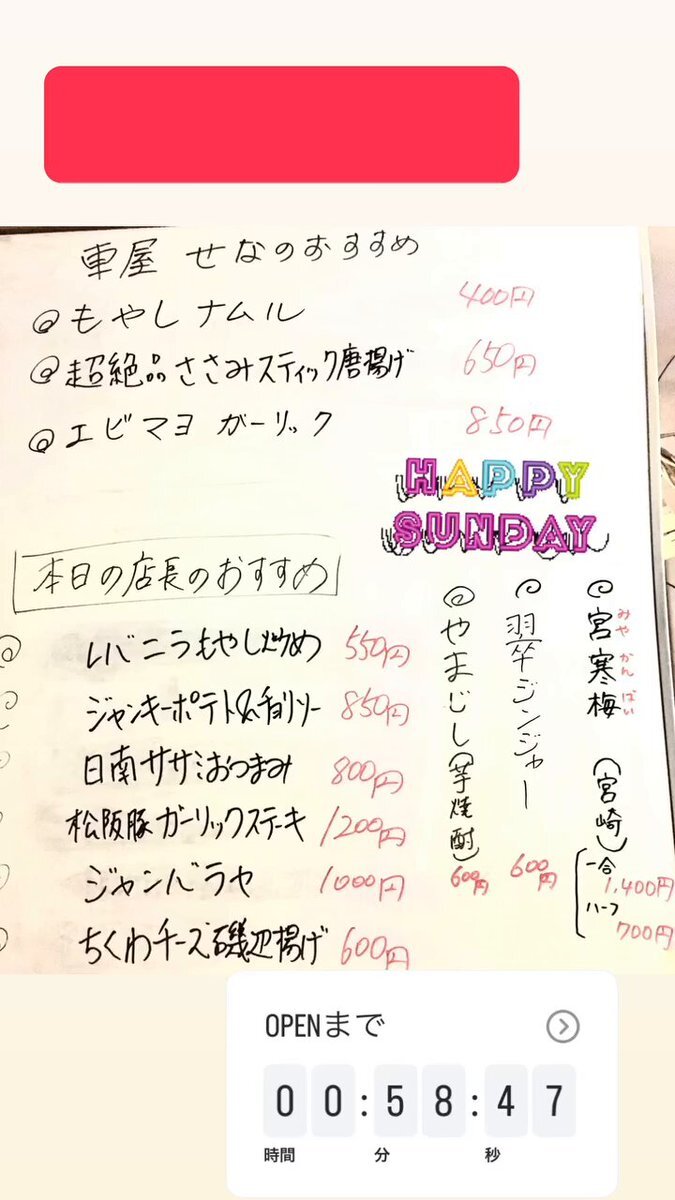 車屋 せなのおすすめ
もやしナムル 400円
超絶品ささみスティック唐揚げ 650円
エビマヨ ガーリック 850円
HAPPY
SUNDAY
本日の店長のおすすめ
レバニラもやし炒め 550円
ジャンキーポテト&チョリソー 850円
日南ササミおつまみ 800円
松阪豚ガーリックステーキ 1200円
ジャンバラヤ 1000円
ちくわチーズ磯辺揚げ 600円
宮寒梅 (宮崎)
みや かん ばい
一合 1,400円
ハーフ 700円
翠ジンジャー 600円
やまじし(芋焼酎) 600円
OPENまで
00:58:47
時間 分 秒